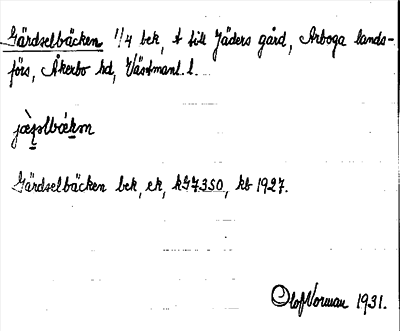 Gärdselbäcken 1/4 bek, t till Jäders gård, Arboga lands-
förs, Åkerbo hd, Västmanl. l.
Gärdselbäcken bek, ek, k97350, kb 1927.
Olof Norman 1931.